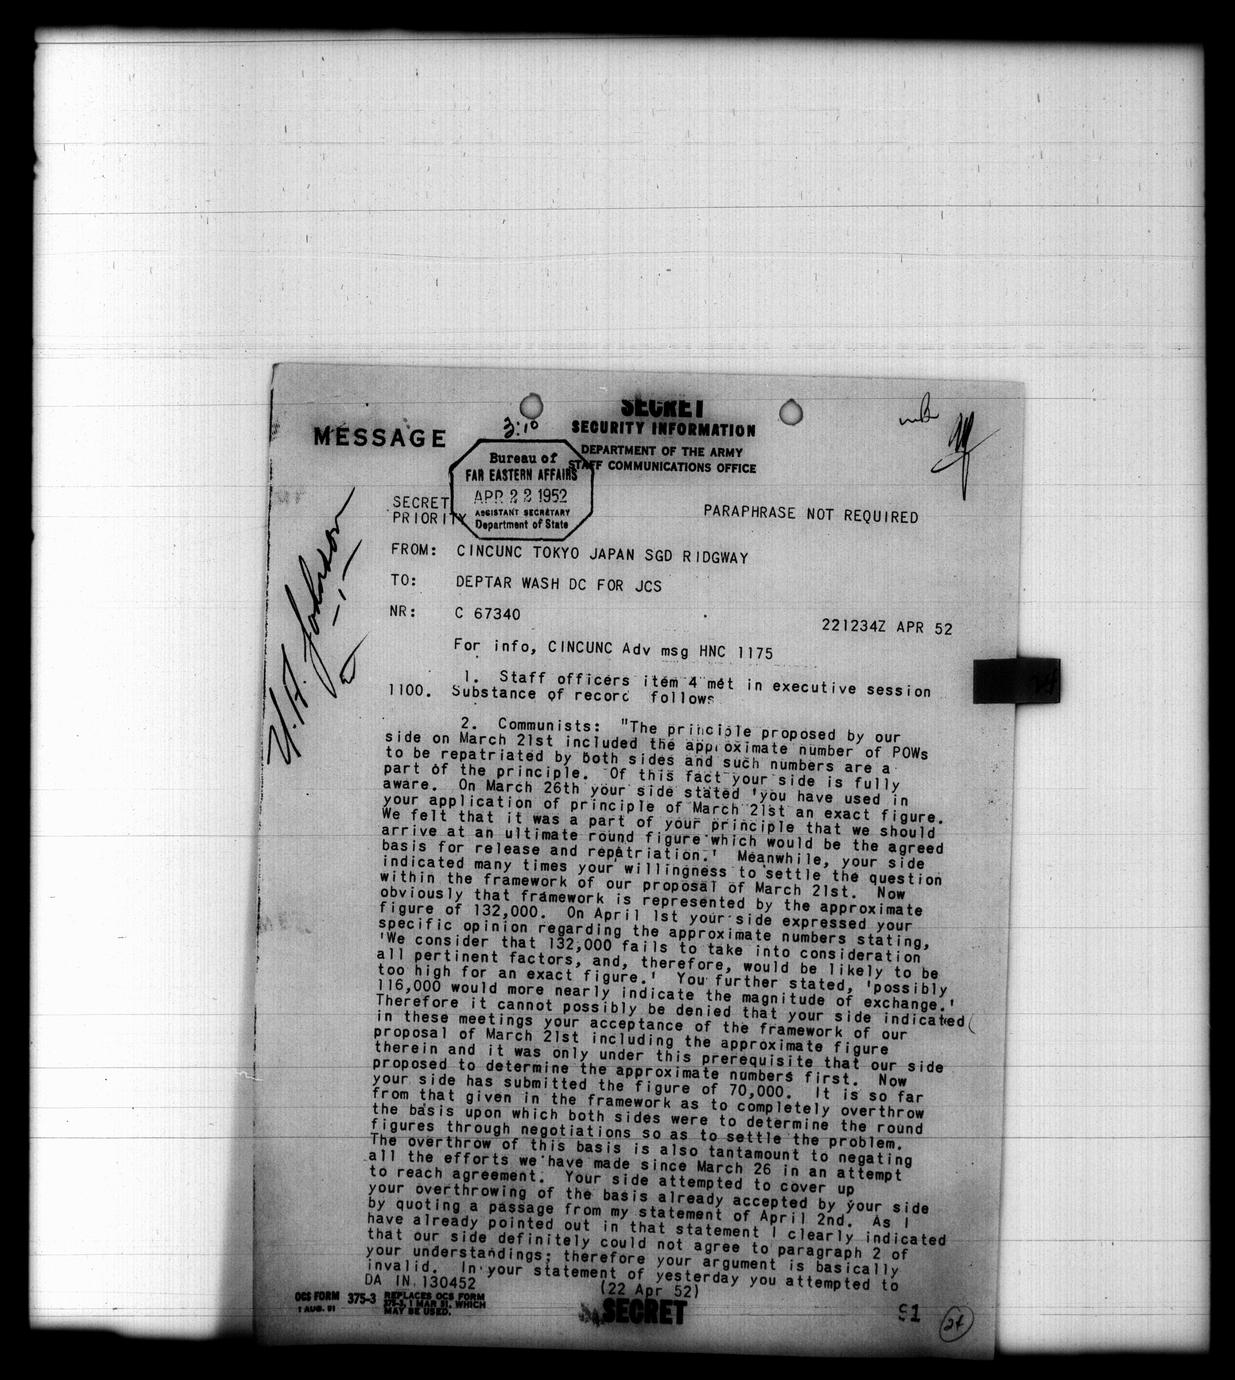 SECRET
SECURITY INFORMATION
MESSAGE
3:10
DEPARTMENT OF THE ARMY
STAFF COMMUNICATIONS OFFICE
Bureau of
FAR EASTERN AFFAIRS
APR 22 1952
ASSISTANT SECRETARY
Department of State
SECRET
PRIORITY
PARAPHRASE NOT REQUIRED
U. A. Johnson
FROM: CINCUNC TOKYO JAPAN SGD RIDGWAY
TO: DEPTAR WASH DC FOR JCS
NR: C 67340
221234Z APR 52
For info, CINCUNC Adv msg HNC 1175
1. Staff officers item 4 met in executive session
1100. Substance of record follows
2. Communists: "The principle proposed by our
side on March 21st included the approximate number of POWs
to be repatriated by both sides and such numbers are a
part of the principle. Of this fact your side is fully
aware. On March 26th your side stated 'you have used in
your application of principle of March 21st an exact figure.
We felt that it was a part of your principle that we should
arrive at an ultimate round figure which would be the agreed
basis for release and repatriation.' Meanwhile, your side
indicated many times your willingness to settle the question
within the framework of our proposal of March 21st. Now
obviously that framework is represented by the approximate
figure of 132,000. On April 1st your side expressed your
specific opinion regarding the approximate numbers stating,
'We consider that 132,000 fails to take into consideration
all pertinent factors, and, therefore, would be likely to be
too high for an exact figure.' You further stated, 'possibly
116,000 would more nearly indicate the magnitude of exchange.'
Therefore it cannot possibly be denied that your side indicated
in these meetings your acceptance of the framework of our
proposal of March 21st including the approximate figure
therein and it was only under this prerequisite that our side
proposed to determine the approximate numbers first. Now
your side has submitted the figure of 70,000. It is so far
from that given in the framework as to completely overthrow
the basis upon which both sides were to determine the round
figures through negotiations so as to settle the problem.
The overthrow of this basis is also tantamount to negating
all the efforts we have made since March 26 in an attempt
to reach agreement. Your side attempted to cover up
your overthrowing of the basis already accepted by your side
by quoting a passage from my statement of April 2nd. As I
have already pointed out in that statement I clearly indicated
that our side definitely could not agree to paragraph 2 of
your understandings; therefore your argument is basically
invalid. In your statement of yesterday you attempted to
DA IN 130452
(22 Apr 52)
OCS FORM 375-3
1 AUG. 51
REPLACES OCS FORM
375-3, 1 MAR 51, WHICH
MAY BE USED.
SECRET
S1
24